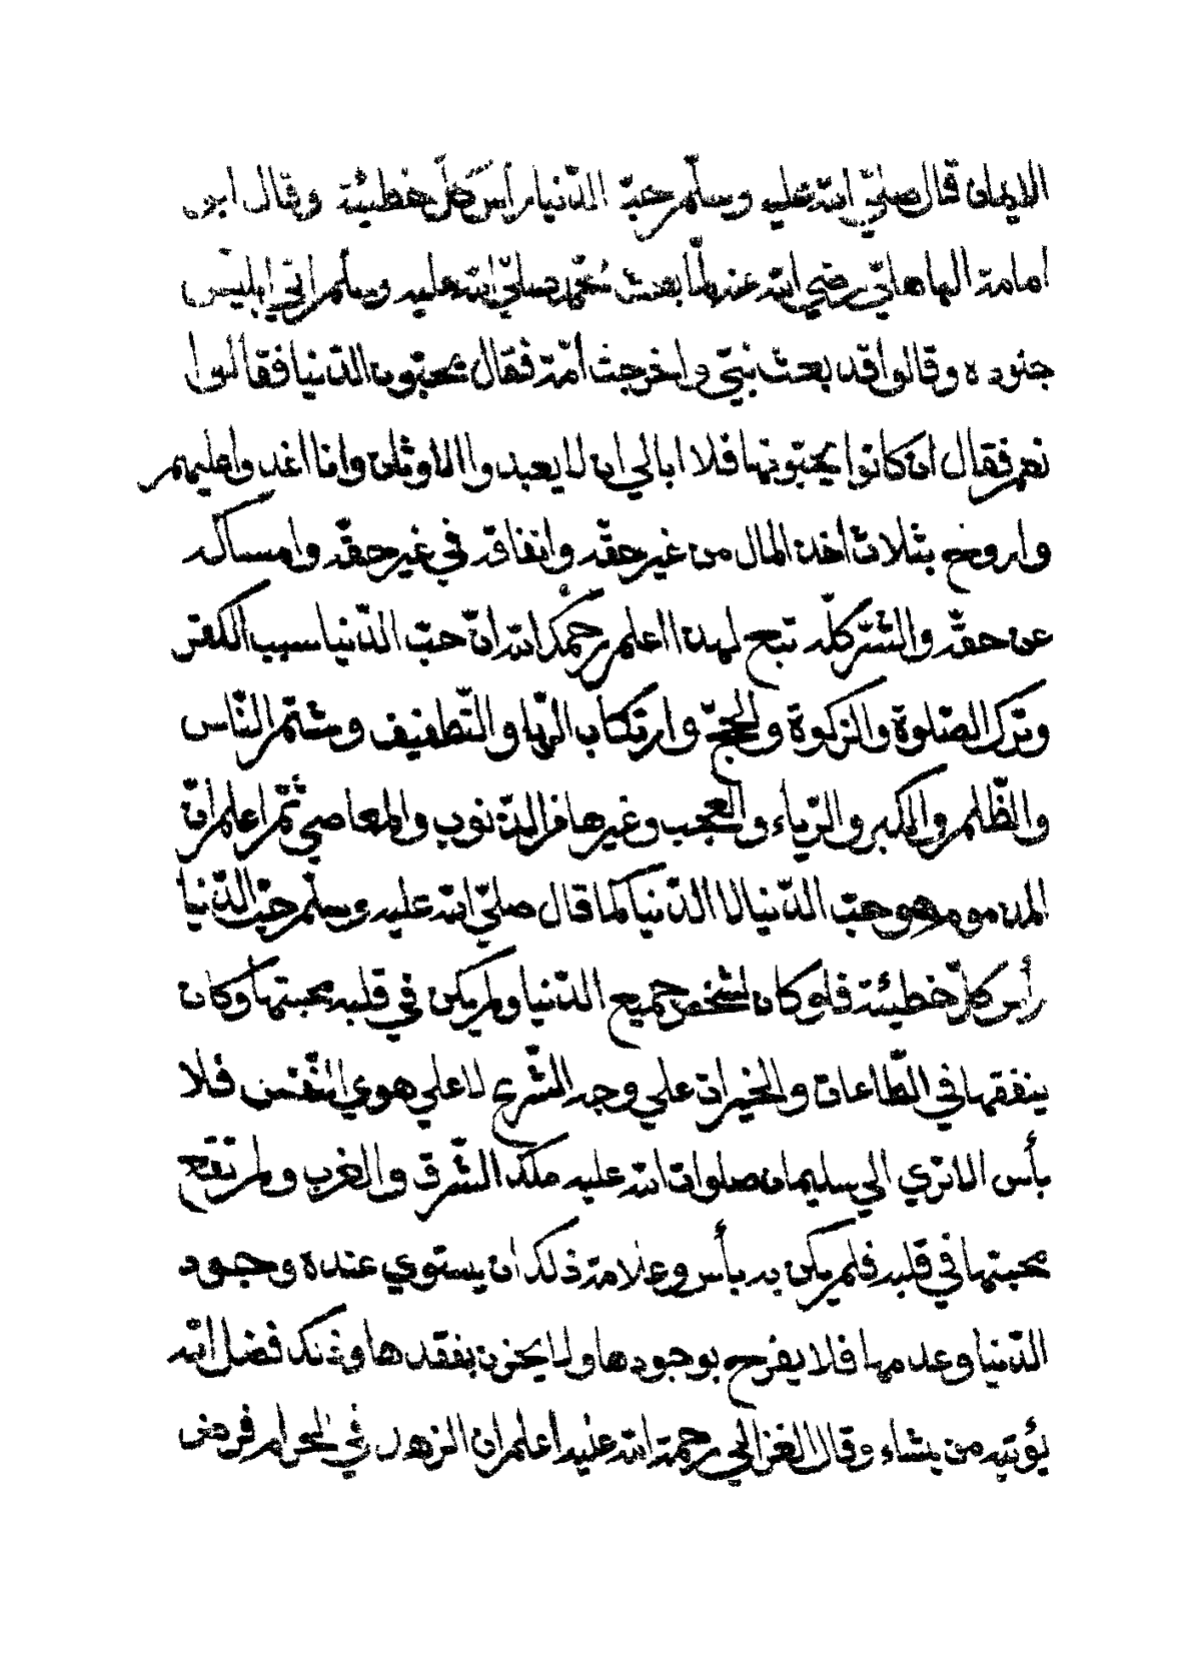 الايمان قال صلّي الله عليه وسلّم حبّ الدّنيا رأس كلّ خطيئة وقال ابو
امامة الباهليّ رضي الله عنه لمّا بعث محمّد صلّي الله عليه وسلّم اتي ابليس
جنوده وقالوا قد بعث نبيّ واخرجت أمّة فقال يحبّون الدّنيا فقالوا
نعم فقال ان كانوا يحبّونها فلا ابالي ان لا يعبدوا الاوثان وانا اغدوا عليهم
واروح بثلاث أخذ المال من غير حقّه وانفاقه في غير حقّه وامساكه
عن حقّه والشّرّ كلّه تبع لهذا اعلم رحمك الله انّ حبّ الدّنيا سبب الكفر
وترك الصّلوة والزكوة والحجّ وارتكاب الرّبا والتّطفيف وشتم النّاس
والظّلم والكبر والرّياء والعجب وغيرها من الذّنوب والمعاصي ثمّ اعلم انّ
المذموم هو حبّ الدّنيا لا الدّنيا كما قال صلّي الله عليه وسلّم حبّ الدّنيا
رأس كلّ خطيئة فلو كان لشخص جميع الدّنيا ولم يكن في قلبه محبتها وكان
ينفقها في الطّاعات والخيرات علي وجه الشّرع لا علي هوي النّفس فلا
بأس الا تري الي سليمان صلوات الله عليه ملك الشّرق والغرب ولم تقع
محبتها في قلبه فلم يكن به بأس وعلامة ذلك ان يستوي عنده وجود
الدّنيا وعدمها فلا يفرح بوجودها ولا يحزن بفقدها وذلك فضل الله
يؤتيه من يشاء وقال الغزالي رحمة الله عليه اعلم ان الزهد في الحرام فرض